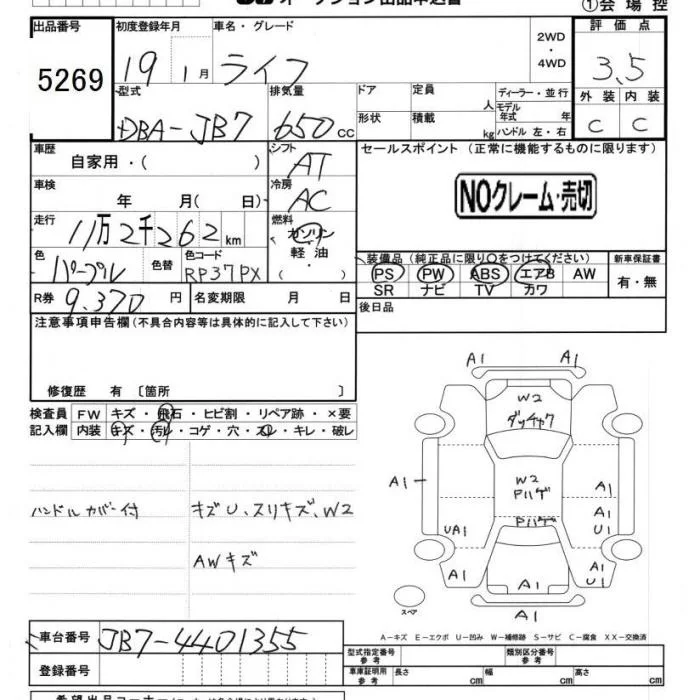 ①会場控
出品番号 初度登録年月 車名・グレード 2WD・4WD 評価点
5269 19 1月 ライフ 3.5
型式 排気量 ドア 定員 人 ディーラー・並行 外装 内装
DBA-JB7 650 CC 形状 積載 kg モデル年式 年 ハンドル 左・右 C C
車歴 シフト セールスポイント(正常に機能するものに限ります)
自家用・( ) AT
車検 冷房 NOクレーム・売切
年 月( 日) AC
走行 燃料
11万2千262 km ガソリン
軽油
・( )
色 色替 色コード 装備品(純正品に限り○をつけてください) 新車保証書
パープル RP37PX PS PW ABS エアB AW 有・無
SR ナビ TV カワ
R券 9.370 円 名変期限 月 日 後日品
注意事項申告欄(不具合内容等は具体的に記入して下さい)
修復歴 有 〔箇所 〕
検査員 FW キズ・飛石・ヒビ割・リペア跡・×要
記入欄 内装 キズ・汚レ・コゲ・穴・スレ・キレ・破レ
ハンドルカバー付 キズU、スリキズ、W2
AWキズ
A1 A1
W2
A1 W2 A1
A1
U1
UA1
A1 A1 A1
U1
スペア A1
A-キズ E-エクボ U-凹み W-補修跡 S-サビ C-腐食 XX-交換済
車台番号 JB7-4401355 型式指定番号 参考 類別区分番号 参考
登録番号 車庫証明用 参考 長さ cm 幅 cm 高さ cm